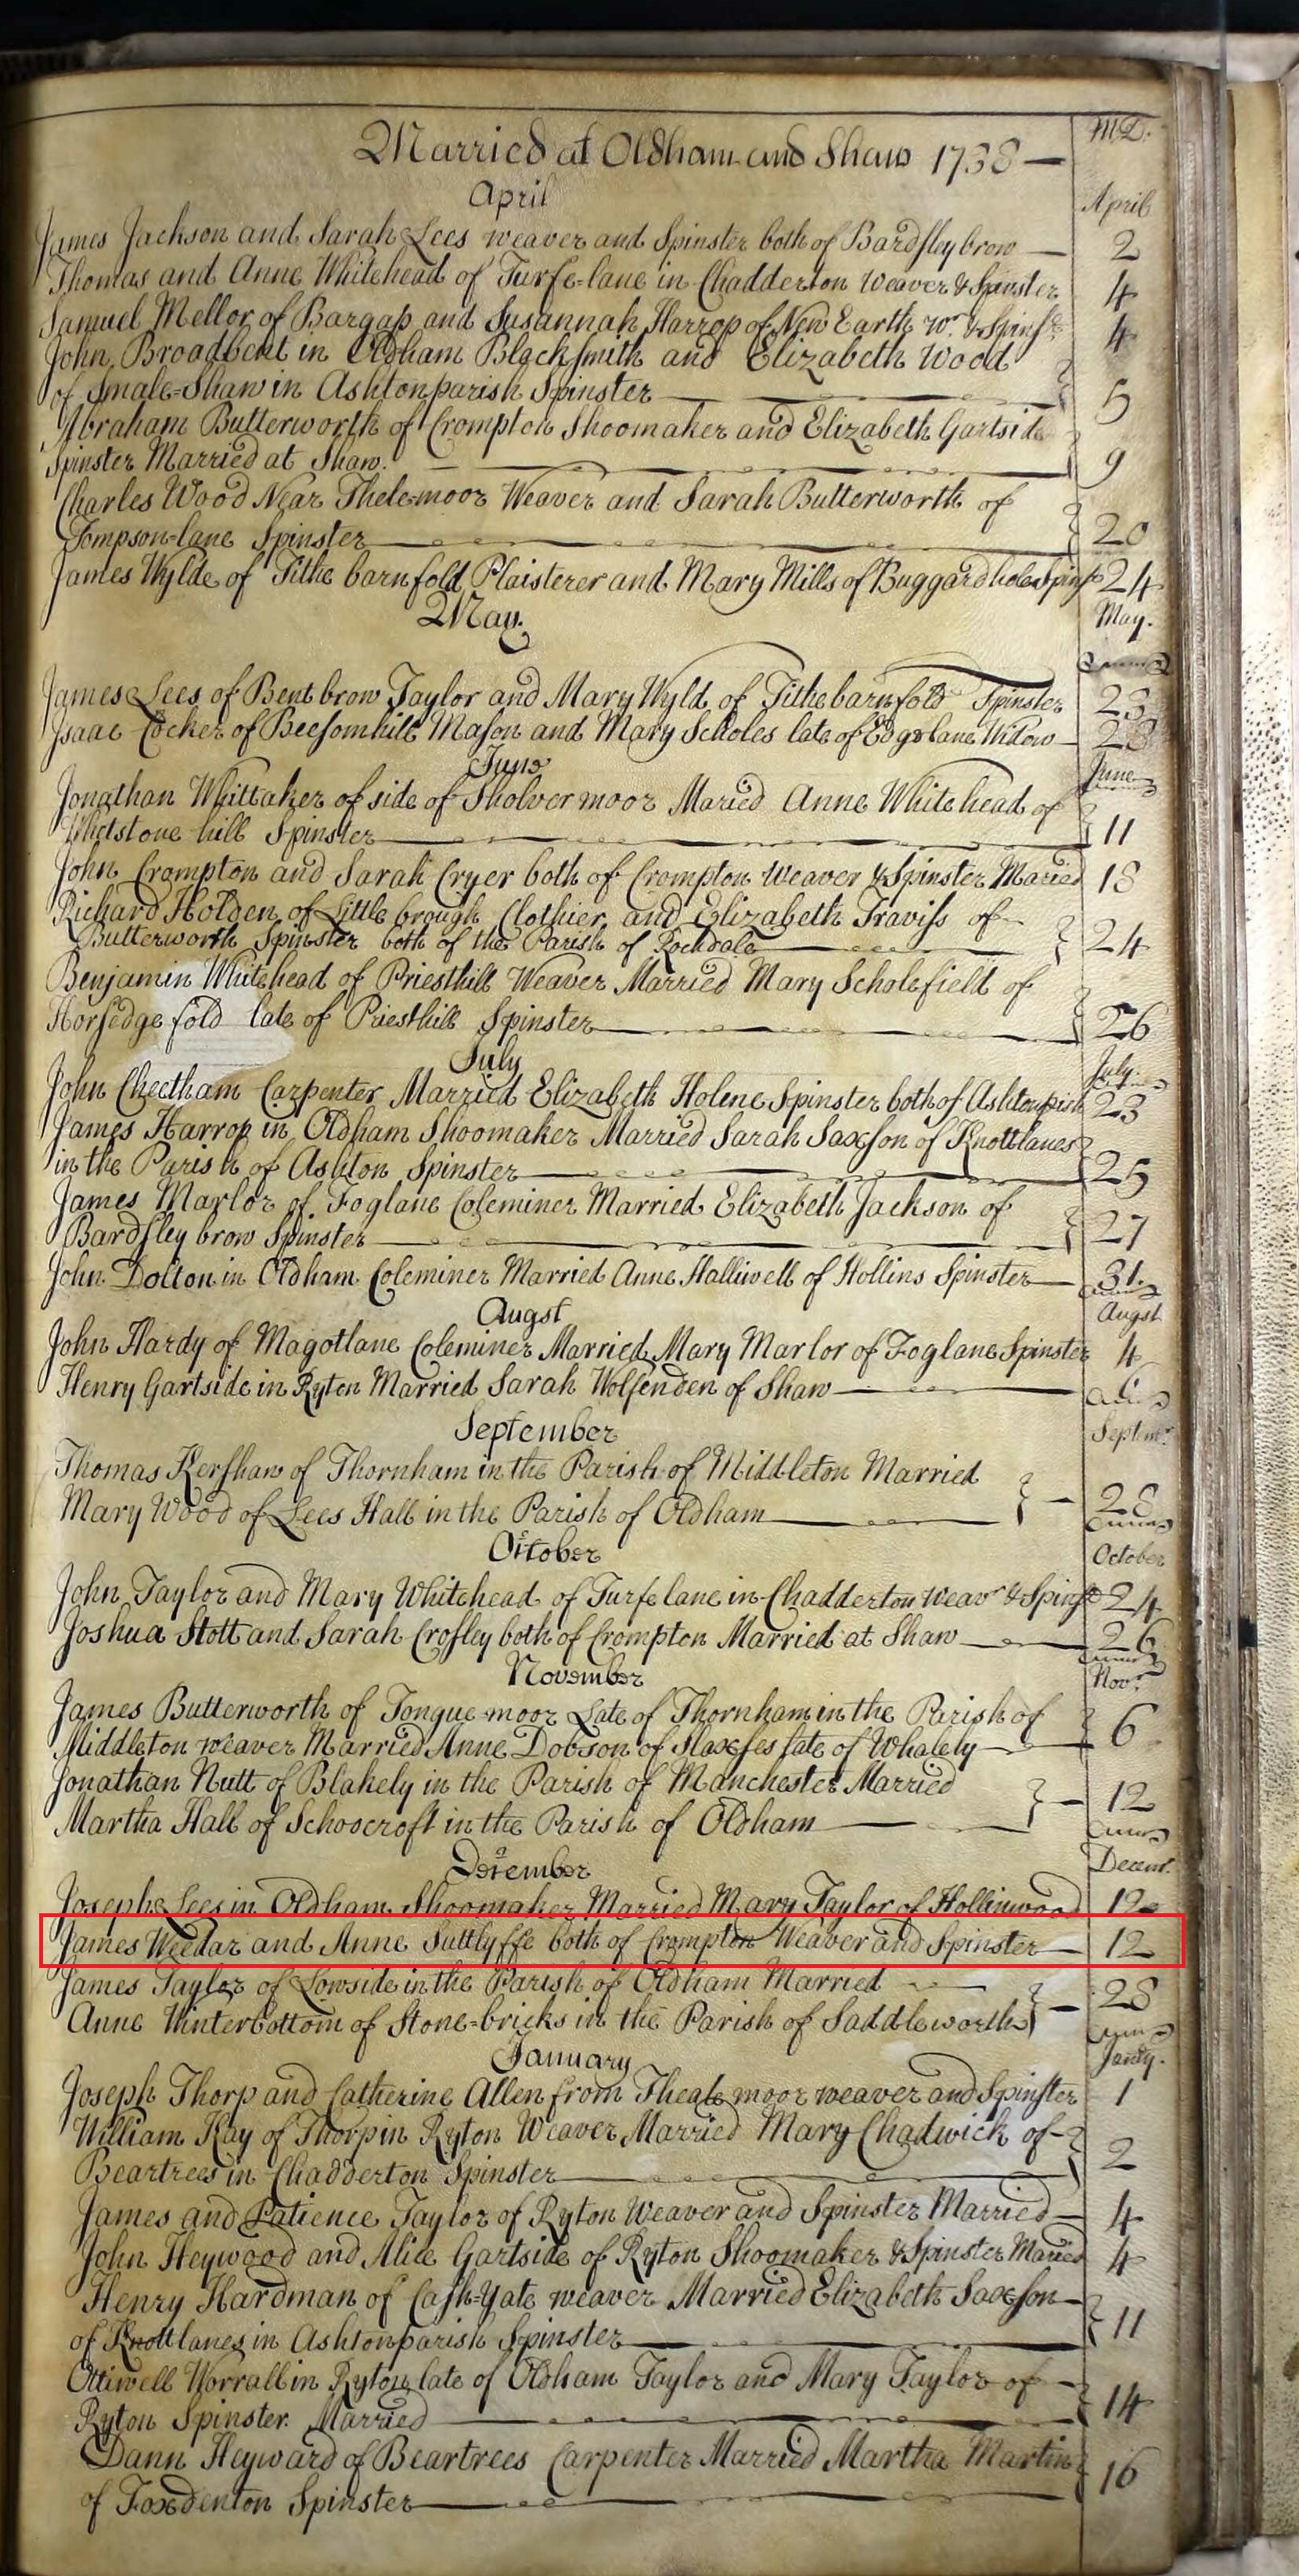 M.D.
Married at Oldham and Shaw 1738
April April
James Jackson and Sarah Lees weaver and Spinster both of Bardsley brow 2
Thomas and Anne Whitehead of Turfe-lane in Chadderton Weaver & Spinster 4
Samuel Mellor of Bargap and Susannah Harrop of New Earth wr. & Spinstr 4
John Broadbent in Oldham Blacksmith and Elizabeth Wood
of Smale-Shaw in Ashton parish Spinster 5
Abraham Butterworth of Crompton Shoomaker and Elizabeth Gartside
Spinster Married at Shaw. 9
Charles Wood Near Thele-moor Weaver and Sarah Butterworth of
Tompson-lane Spinster 20
James Wylde of Tithe barn fold Plaisterer and Mary Mills of Buggard hole Spinstr 24
May. May.
James Lees of Bent brow Taylor and Mary Wyld of Tithe barn fold Spinster 23
Isaac Cocker of Beesom hill Mason and Mary Scholes late of Edge lane Widow 28
June June
Jonathan Whittaker of side of Sholver moor Maried Anne Whitehead of
Whetstone hill Spinster 11
John Crompton and Sarah Cryer both of Crompton Weaver & Spinster Maried 18
Richard Holden of Little brough Clothier and Elizabeth Traviss of
Butterworth Spinster both of the Parish of Rochdale 24
Benjamin Whitehead of Priesthill Weaver Married Mary Scholefield of
Horsedge fold late of Priesthill Spinster 26
July July
John Cheetham Carpenter Married Elizabeth Holene Spinster both of Ashton prish 23
James Harrop in Oldham Shoomaker Married Sarah Saxson of Knottlanes
in the Parish of Ashton Spinster 25
James Marlor of Foglane Coleminer Married Elizabeth Jackson of
Bardsley brow Spinster 27
John Dolton in Oldham Coleminer Married Anne Halliwell of Hollins Spinster 31
Augst Augst
John Hardy of Magotlane Coleminer Married Mary Marlor of Foglane Spinster 4
Henry Gartside in Ryton Married Sarah Wolfenden of Shaw 6
September Septembr
Thomas Kershaw of Thornham in the Parish of Middleton Married
Mary Wood of Lees Hall in the Parish of Oldham 28
October October
John Taylor and Mary Whitehead of Turfe lane in Chadderton Weavr & Spinstr 24
Joshua Stott and Sarah Crosley both of Crompton Married at Shaw 26
November Novr
James Butterworth of Tongue-moor Late of Thornham in the Parish of
Middleton weaver Married Anne Dobson of Slaxfes late of Whalely 6
Jonathan Nutt of Blakely in the Parish of Manchester Married
Martha Hall of Schoocroft in the Parish of Oldham 12
December Decemr
Joseph Lees in Oldham Shoomaker Married Mary Taylor of Hollinwood 12
James Weedar and Anne Suttlyffe both of Crompton Weaver and Spinster 12
James Taylor of Lowside in the Parish of Oldham Married
Anne Winterbottom of Stone-bricks in the Parish of Saddleworth 28
January Janry.
Joseph Thorp and Catherine Allen from Theale moor weaver and Spinster 1
William Kay of Thorp in Ryton Weaver Married Mary Chadwick of
Beartrees in Chadderton Spinster 2
James and Patience Taylor of Ryton Weaver and Spinster Married 4
John Heywood and Alice Gartside of Ryton Shoomaker & Spinster Maried 4
Henry Hardman of Cash-Yate weaver Married Elizabeth Saxson
of Knottlanes in Ashton parish Spinster 11
Ottiwell Worrall in Ryton late of Oldham Taylor and Mary Taylor of
Ryton Spinster Married 14
Dann Heyward of Beartrees Carpenter Married Martha Martin
of Foxdenton Spinster 16